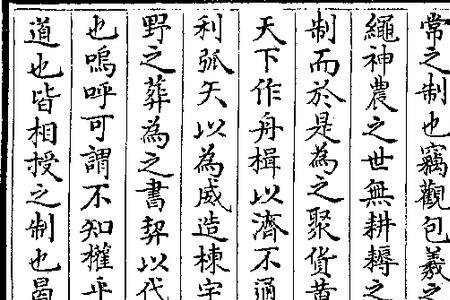 常之制也竊觀包羲之
繩神農之世無耕耨之
制而於是為之聚貨黄
天下作舟楫以濟不通
利弧矢以為威造棟宇
野之葬為之書契以代
也嗚呼可謂不知權乎
道也皆相授之制也曷